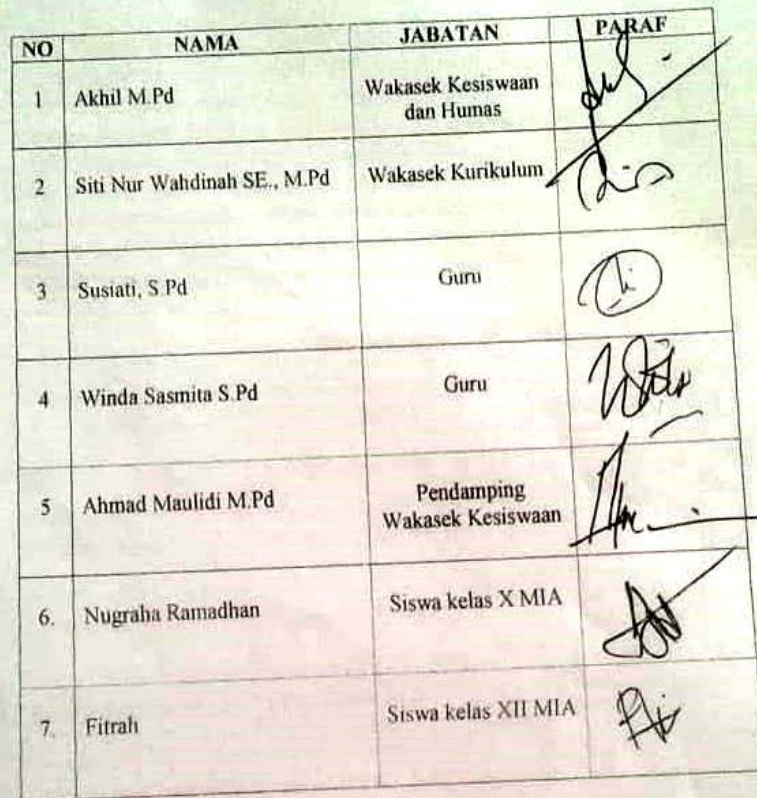 NO NAMA JABATAN PARAF
1 Akhil M.Pd Wakasek Kesiswaan
dan Humas
2 Siti Nur Wahdinah SE., M.Pd Wakasek Kurikulum
3 Susiati, S.Pd Guru
4 Winda Sasmita S.Pd Guru
5 Ahmad Maulidi M.Pd Pendamping
Wakasek Kesiswaan
6. Nugraha Ramadhan Siswa kelas X MIA
7. Fitrah Siswa kelas XII MIA